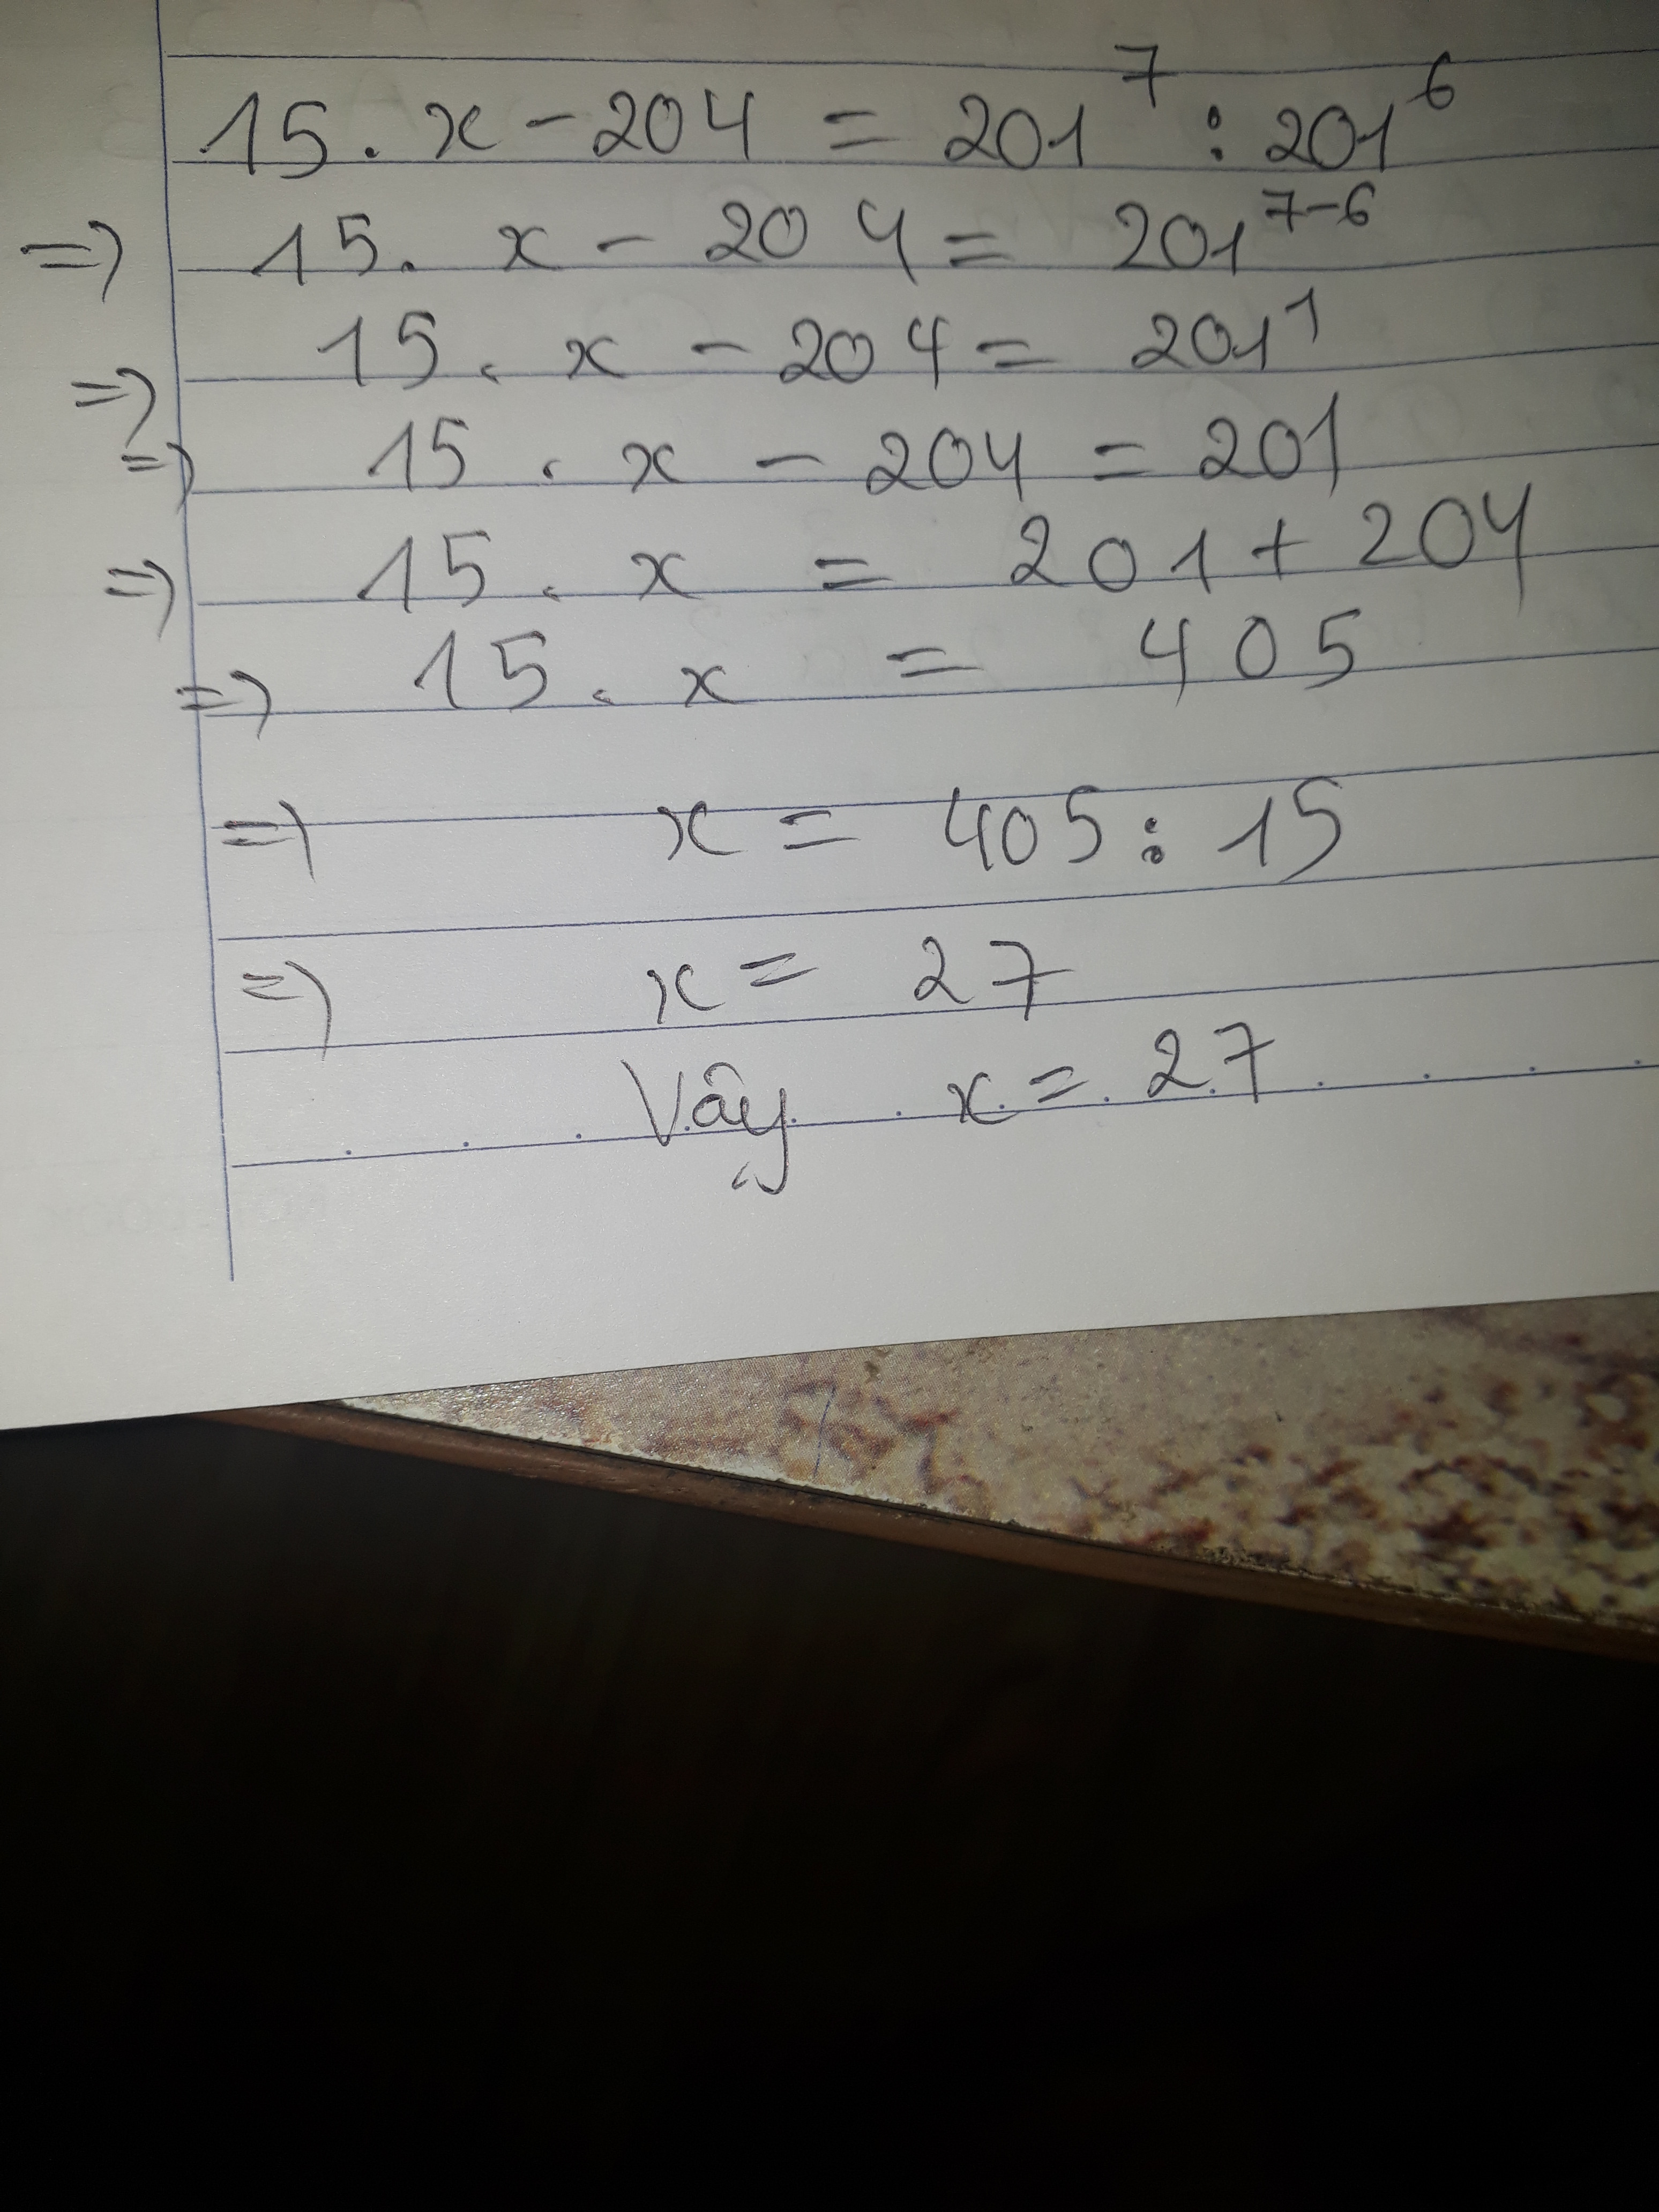 15 . x - 204 = 201⁷ : 201⁶
=> 15 . x - 204 = 201⁷⁻⁶
=> 15 . x - 204 = 201¹
=> 15 . x - 204 = 201
=> 15 . x = 201 + 204
=> 15 . x = 405
=> x = 405 : 15
=> x = 27
Vậy x = 27